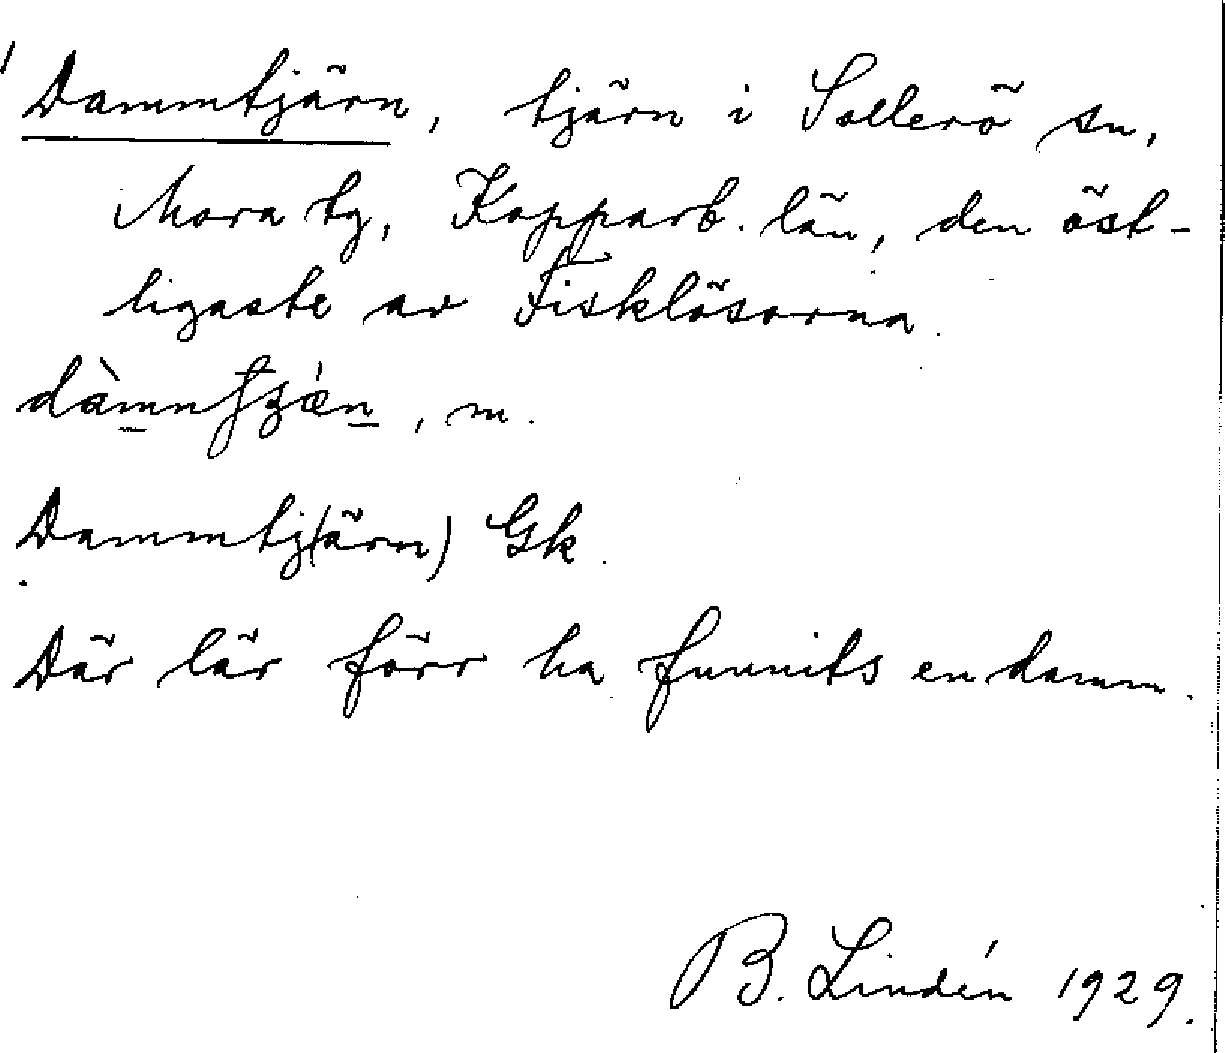 Dammtjärn, tjärn i Sollerö sn,
Mora tg, Kopparb. län, den öst-
ligaste av Fisklösarna.
, m.
Dammtj(ärn) Gk.
Där lär förr ha funnits en damm.
B. Lindén 1929.